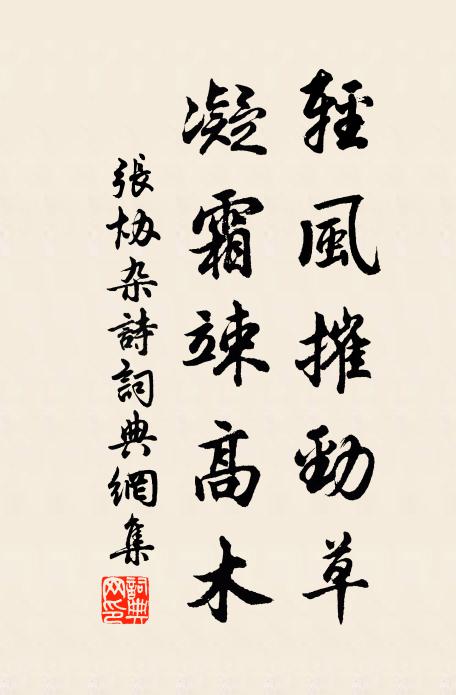 輕風摧勁草
凝霜竦高木
張协杂詩詞典網集
詞典网印